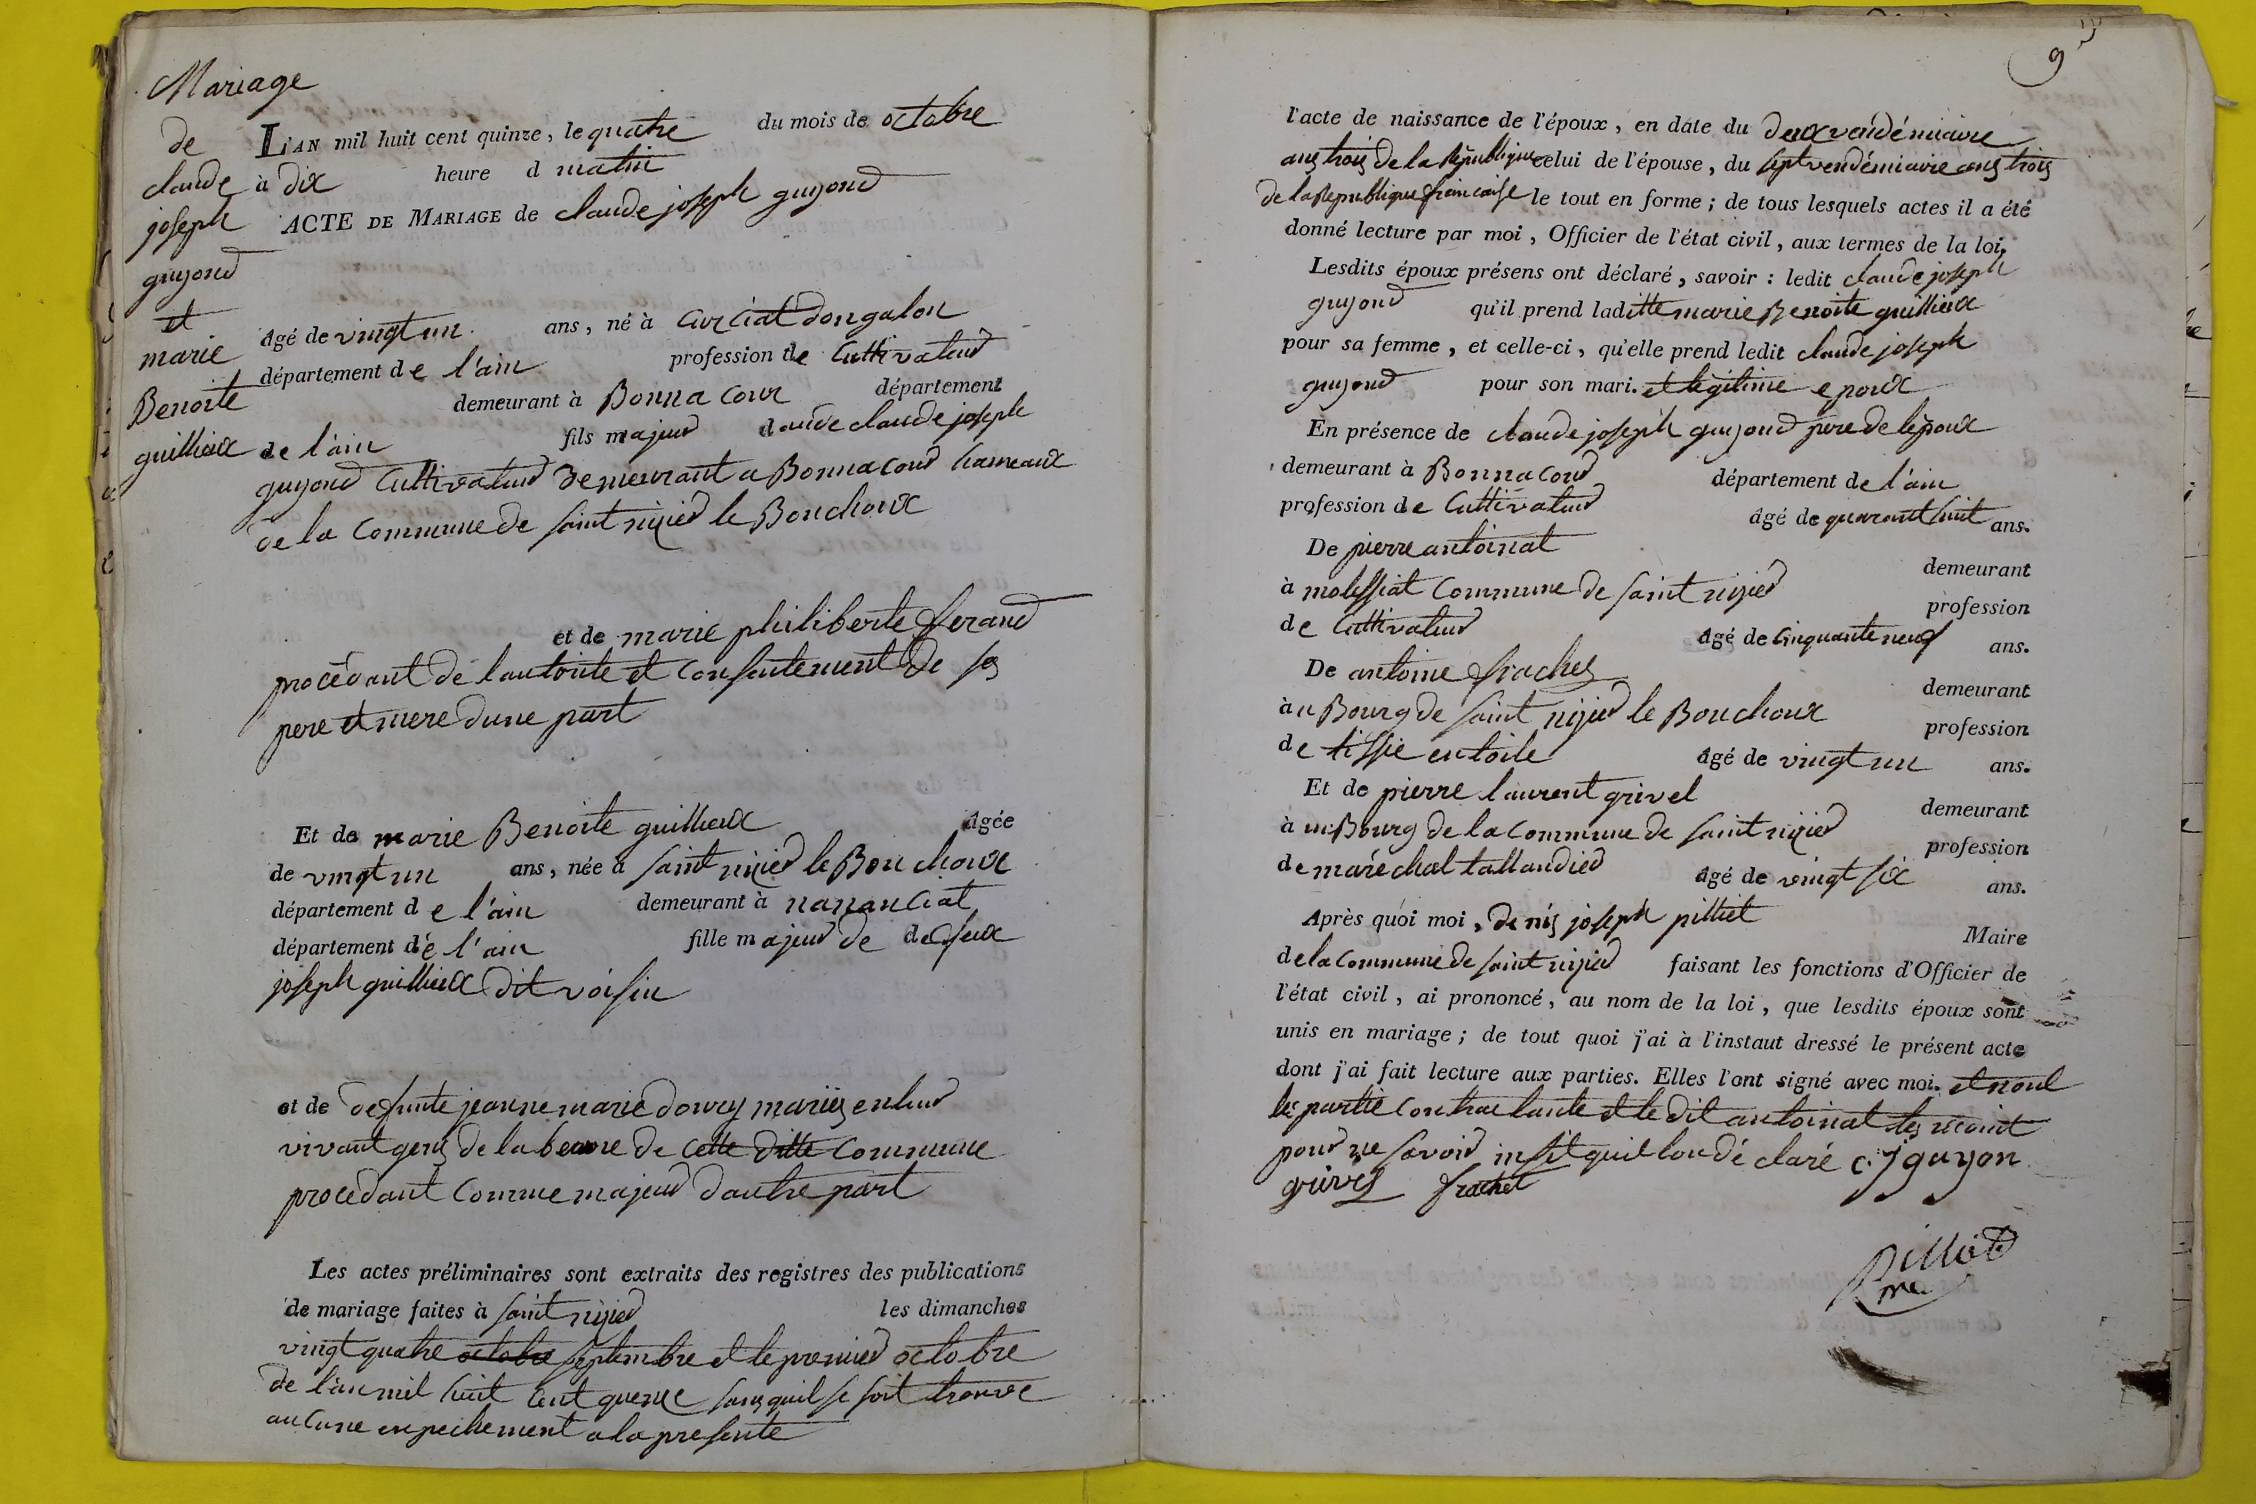 Mariage
de
claude
joseph
guyond
et
marie
Benoite
guillieux
L'AN mil huit cent quinze, le quatre du mois de octobre
à dix heure d matin
ACTE DE MARIAGE de claude joseph guyond
âgé de vingt un ans, né à Curciat dongalon
département de l'ain profession de Cultivateur
demeurant à Bonna cour département
de l'ain fils majeur de claude joseph
guyond Cultivateur demeurant a Bonnacour hameaux
de la Commune de saint nizied le Bouchoux
et de marie philiberte ferand
procédant de lautorite et consentement de ses
pere et mere dune part
Et de marie Benoite guillieux âgée
de vingt un ans, née à saint nizied le Bouchoux
département de l'ain demeurant à nananciat
département de l'ain fille majeur de defeux
joseph guillieux dit voisin
et de defunte jeanne marie doury mariés en leur
vivant gens de labeure de cette ditte Commune
procedant Comme majeur dautre part
Les actes préliminaires sont extraits des registres des publications
de mariage faites à saint nizied les dimanches
vingt quatre octobre septembre et le premied octobre
de l'an mil huit Cent quenze sans quil se soit trouve
auCune enpechement a la presente
9
l'acte de naissance de l'époux, en date du deux vendémiaire
ans trois de la République celui de l'épouse, du sept vendémiaire ans trois
de la Republique francaise le tout en forme; de tous lesquels actes il a été
donné lecture par moi, Officier de l'état civil, aux termes de la loi.
Lesdits époux présens ont déclaré, savoir: ledit claude joseph
guyond qu'il prend laditte marie Benoite guillieux
pour sa femme, et celle-ci, qu'elle prend ledit claude joseph
guyond pour son mari. et légitime epoux
En présence de claude joseph guyond pere de lépoux
demeurant à Bonnacour département de l'ain
profession de Cultivateur âgé de quarant huit ans.
De pierre antoinat demeurant
à molissiat Commune de saint nizied profession
de Cultivateur âgé de Cinquante neuf ans.
De antoine frachet demeurant
à u Bourg de saint nizied le Bouchoux profession
de tissie en toile âgé de vingt un ans.
Et de pierre laurent grivel demeurant
à u Bourg de la commune de saint nizied profession
de maréchal tallandied âgé de vingt six ans.
Après quoi moi, denis joseph pilliet Maire
de la Commune de saint nizied faisant les fonctions d'Officier de
l'état civil, ai prononcé, au nom de la loi, que lesdits époux sont
unis en mariage; de tout quoi j'ai à l'instaut dressé le présent acte
dont j'ai fait lecture aux parties. Elles l'ont signé avec moi. et nont
les partie Contractante et le dit antoinat
pour ne savoir quil lon dé claré c:j guyon
grivel frachet
Pilliet